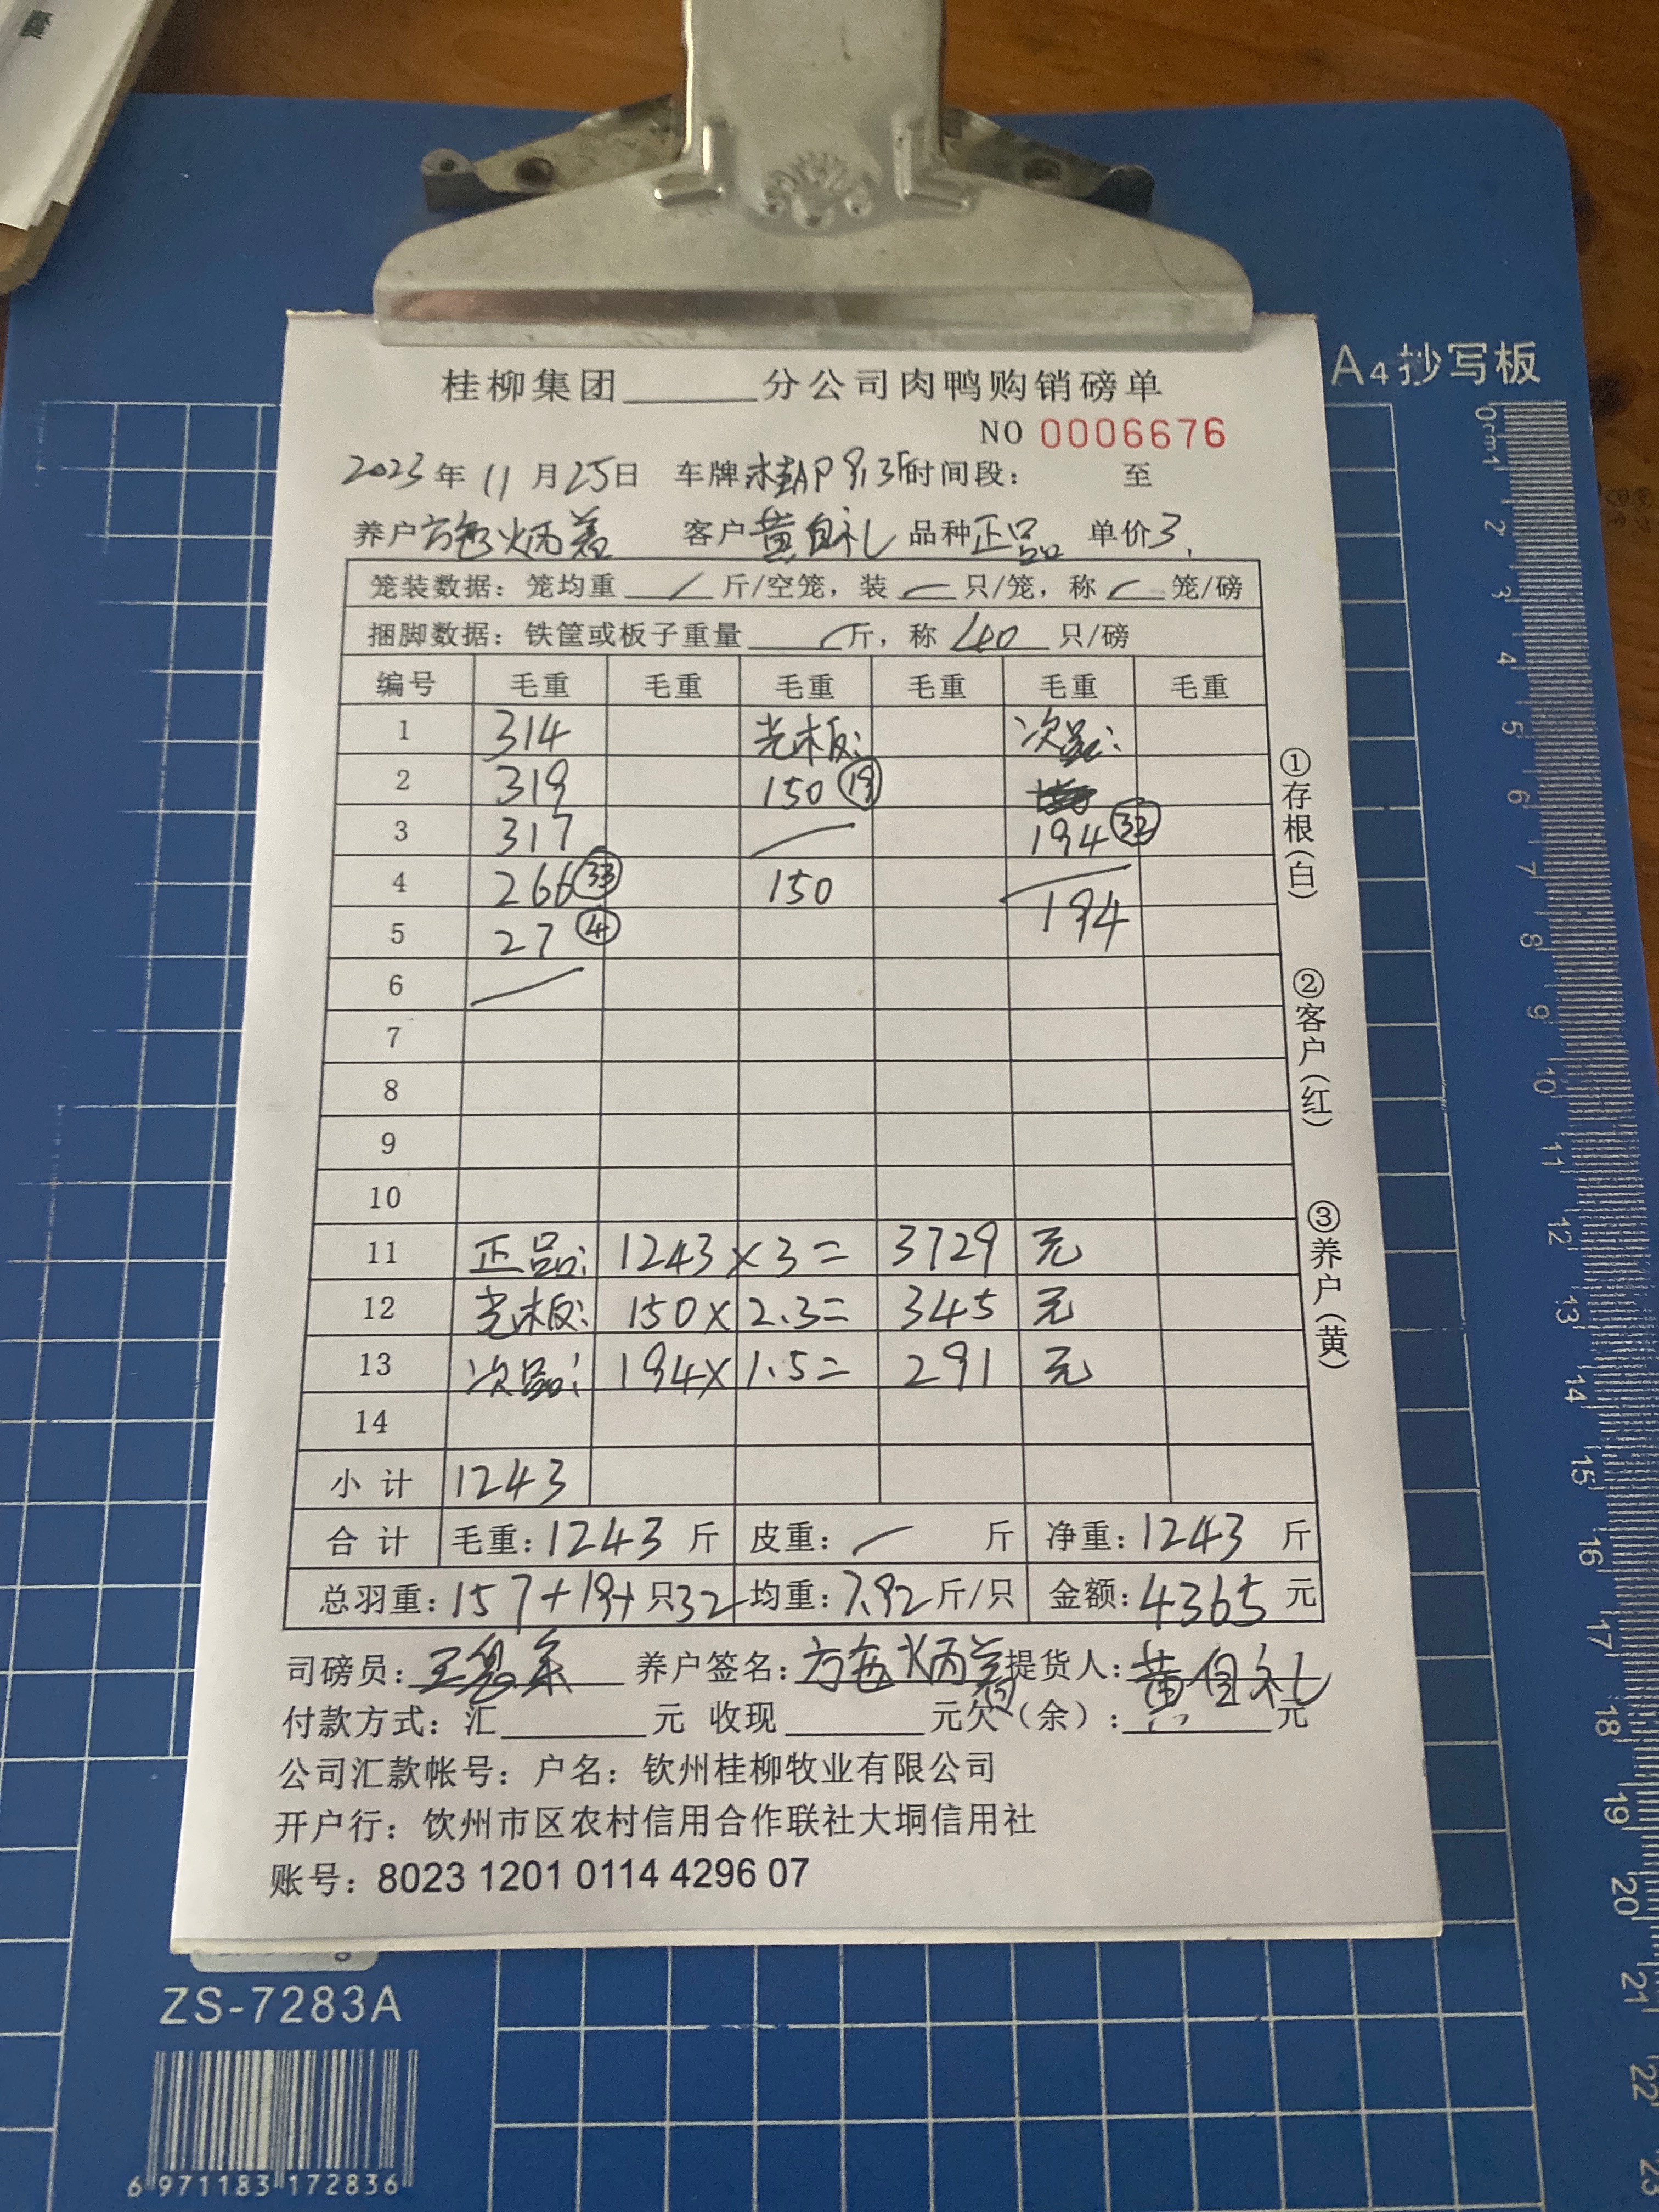 A4抄写板
桂柳集团______分公司肉鸭购销磅单
NO 0006676
2023年11月25日 车牌桂AP 时间段: 至
养户 客户黄自礼 品种正品 单价3
笼装数据: 笼均重 / 斤/空笼, 装 / 只/笼, 称 / 笼/磅
捆脚数据: 铁筐或板子重量 / 斤, 称 40 只/磅
编号 毛重 毛重 毛重 毛重 毛重 毛重
1 314 光板: 次品:
2 319 150 ⑲
3 317 194 ㉜
4 266 ㉝ 150 194
5 27 ④
6
7
8
9
10
11 正品: 1243×3= 3729 元
12 光板: 150×2.3= 345 元
13 次品: 194×1.5= 291 元
14
小计 1243
合计 毛重: 1243 斤 皮重: / 斤 净重: 1243 斤
总羽重: 157+19+ 只32 均重: 7.92斤/只 金额: 4365 元
司磅员: 养户签名: 提货人: 黄自礼
付款方式: 汇______元 收现______元欠(余):______元
公司汇款帐号: 户名: 钦州桂柳牧业有限公司
开户行: 钦州市区农村信用合作联社大垌信用社
账号: 8023 1201 0114 4296 07
①存根(白)
②客户(红)
③养户(黄)
ZS-7283A
6 971183 172836
0cm1
2
3
4
5
6
7
8
9
10
11
12
13
14
15
16
17
18
19
20
21
22
23